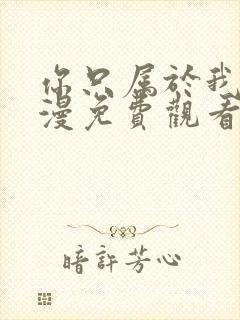 你只属於我
漫免費觀看
暗許芳心